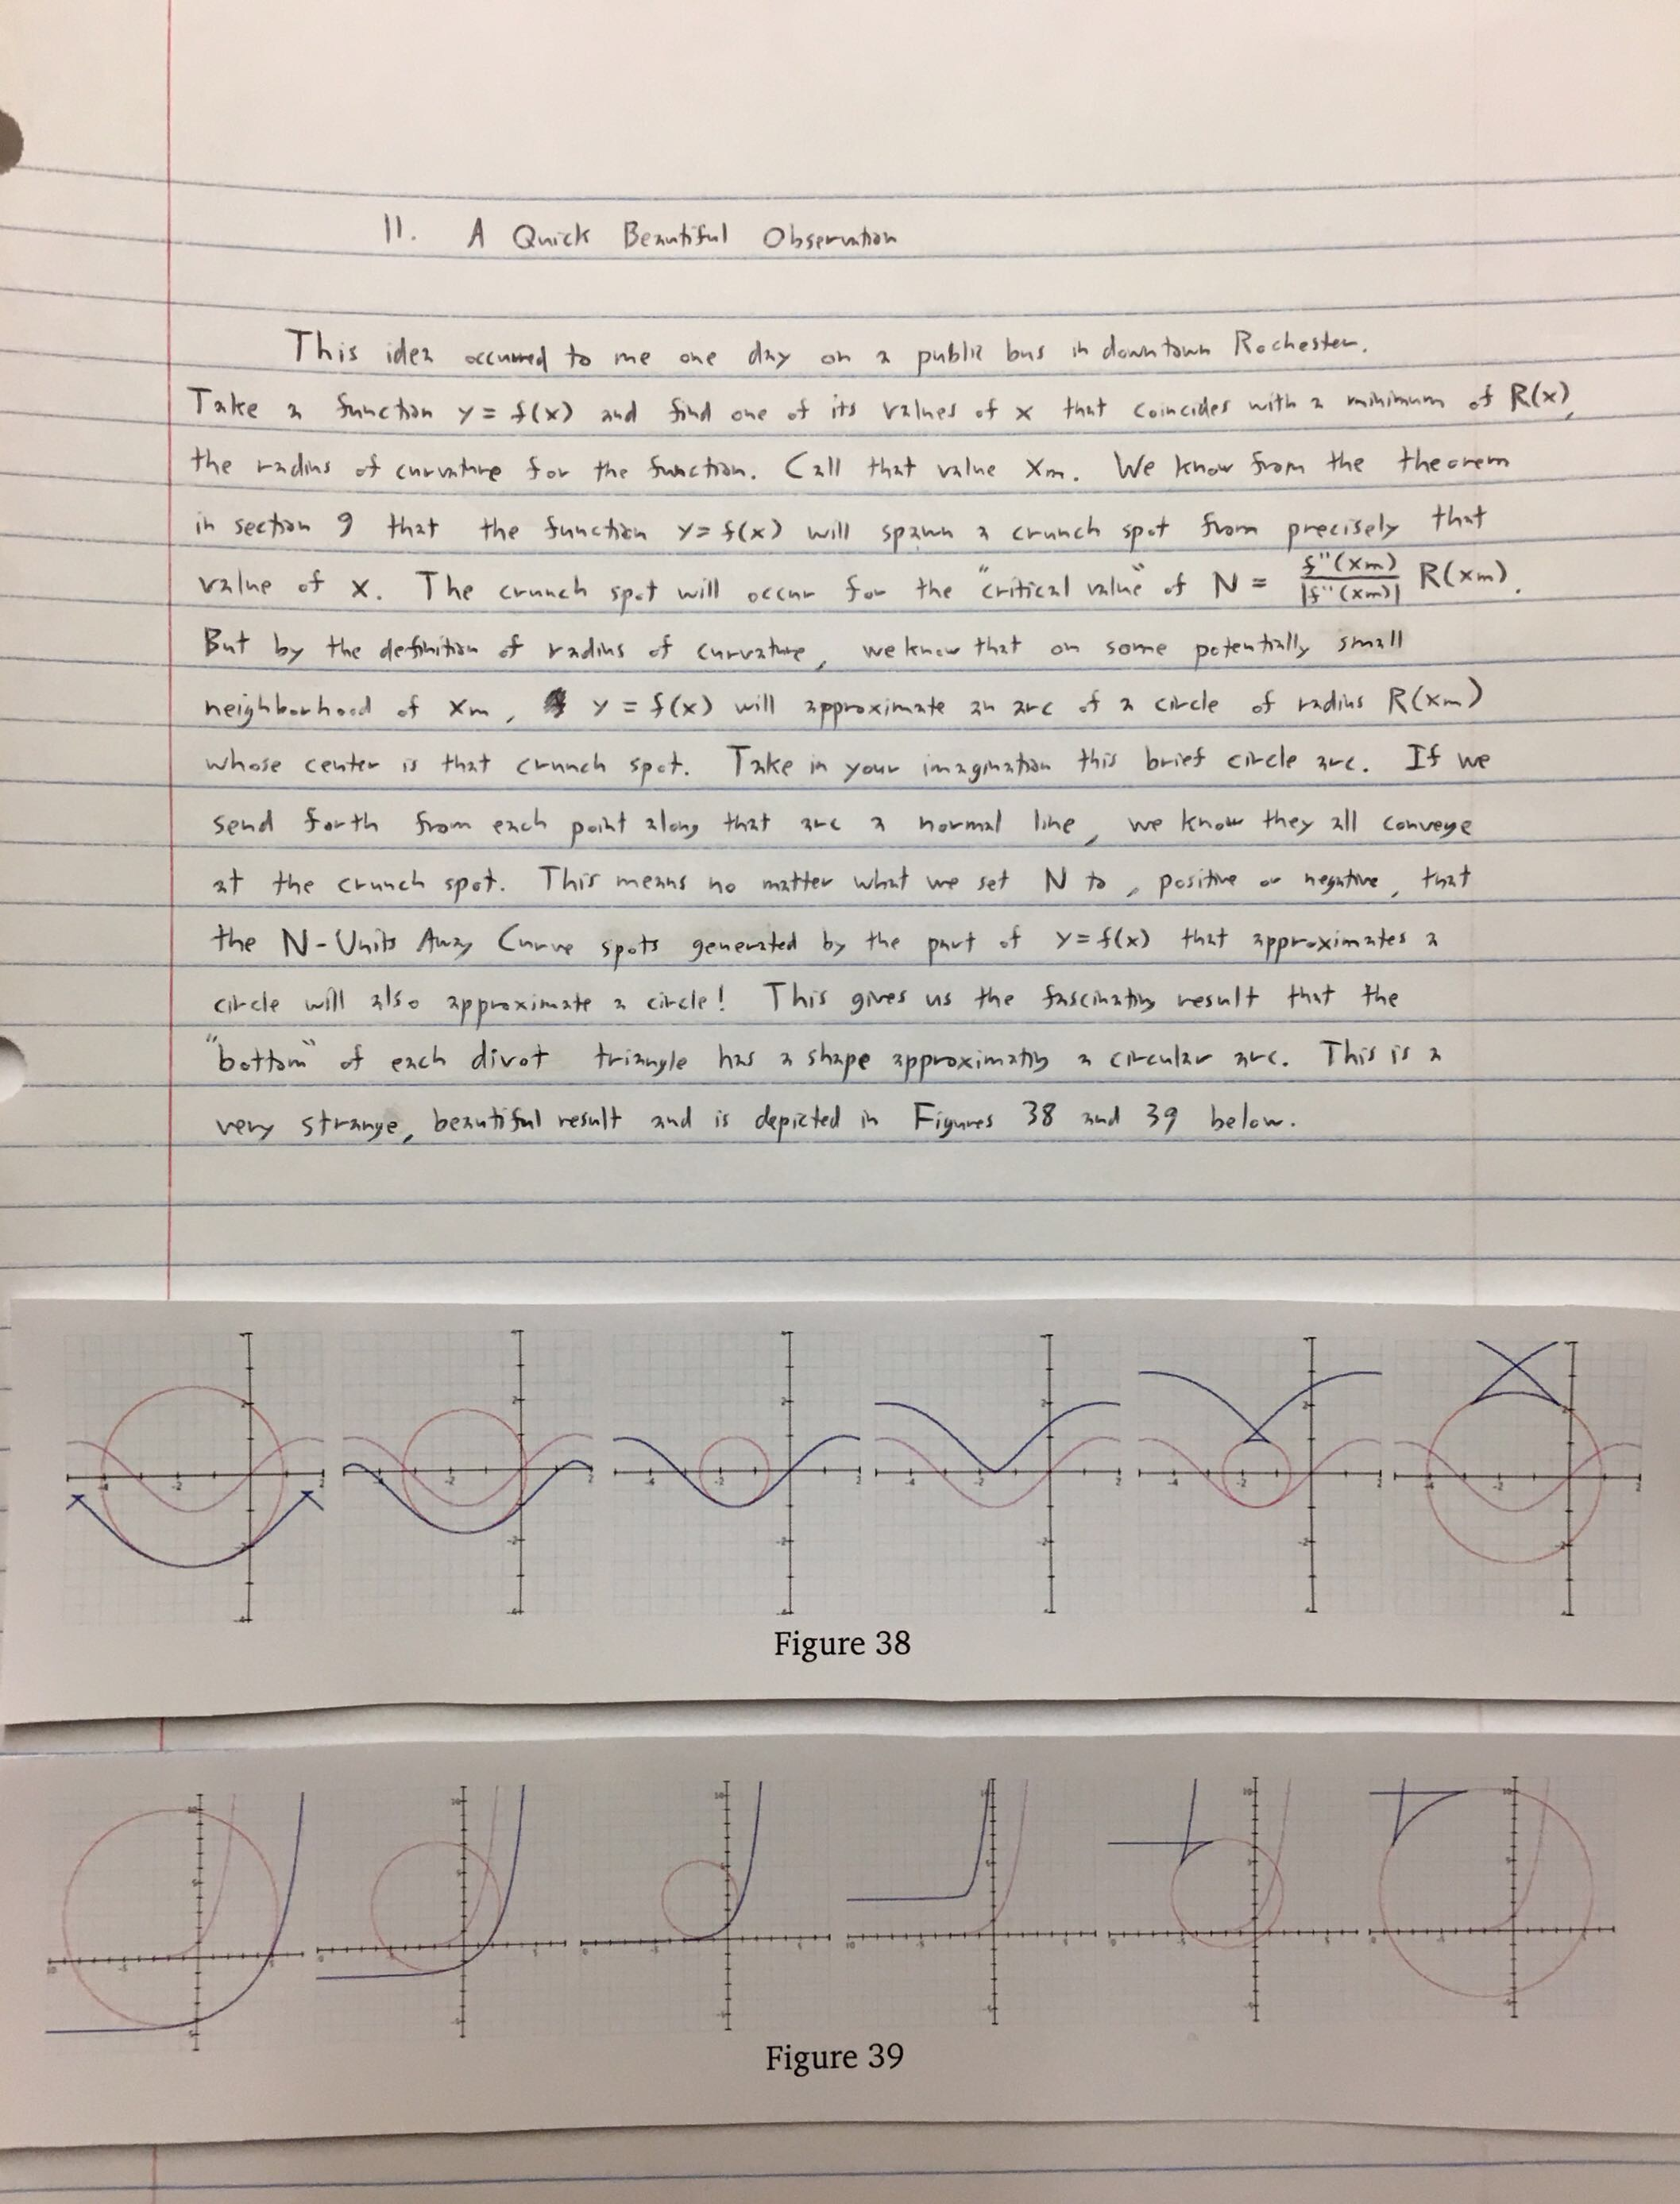 11. A Quick Beautiful Observation
This idea occurred to me one day on a public bus in downtown Rochester.
Take a function y = f(x) and find one of its values of x that coincides with a minimum of R(x),
the radius of curvature for the function. Call that value xm. We know from the theorem
in section 9 that the function y = f(x) will spawn a crunch spot from precisely that
value of x. The crunch spot will occur for the "critical value" of N = f''(xm)/|f''(xm)| R(xm).
But by the definition of radius of curvature, we know that on some potentially small
neighborhood of xm, y = f(x) will approximate an arc of a circle of radius R(xm)
whose center is that crunch spot. Take in your imagination this brief circle arc. If we
send forth from each point along that arc a normal line, we know they all converge
at the crunch spot. This means no matter what we set N to, positive or negative, that
the N-Units Away Curve spots generated by the part of y = f(x) that approximates a
circle will also approximate a circle! This gives us the fascinating result that the
"bottom" of each divot triangle has a shape approximating a circular arc. This is a
very strange, beautiful result and is depicted in Figures 38 and 39 below.
Figure 38
Figure 39